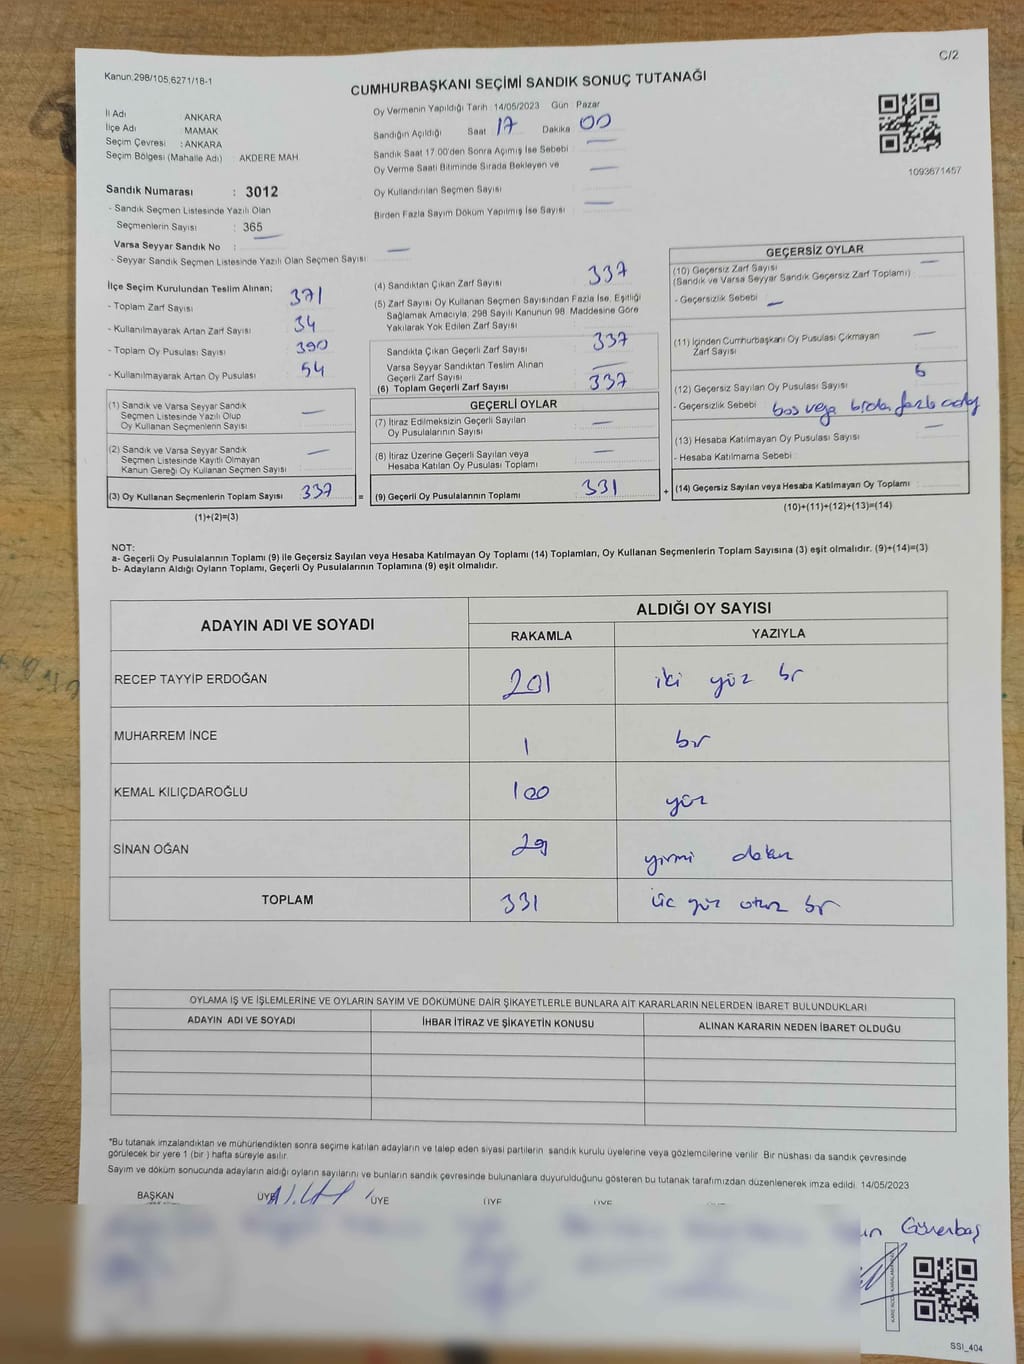 C/2
Kanun,298/105,6271/18-1
CUMHURBAŞKANI SEÇİMİ SANDIK SONUÇ TUTANAĞI
İl Adı ANKARA
İlçe Adı MAMAK
Seçim Çevresi : ANKARA
Seçim Bölgesi (Mahalle Adı) : AKDERE MAH
Sandık Numarası : 3012
- Sandık Seçmen Listesinde Yazılı Olan
Seçmenlerin Sayısı : 365
Varsa Seyyar Sandık No :
- Seyyar Sandık Seçmen Listesinde Yazılı Olan Seçmen Sayısı :
Oy Vermenin Yapıldığı Tarih 14/05/2023 Gün Pazar
Sandığın Açıldığı Saat 17 Dakika 00
Sandık Saat 17.00'den Sonra Açımış İse Sebebi
Oy Verme Saati Bitiminde Sırada Bekleyen ve
Oy Kullandırılan Seçmen Sayısı
Birden Fazla Sayım Döküm Yapılmış İse Sayısı
1093671457
İlçe Seçim Kurulundan Teslim Alınan;
- Toplam Zarf Sayısı 371
- Kullanılmayarak Artan Zarf Sayısı : 34
- Toplam Oy Pusulası Sayısı 390
- Kullanılmayarak Artan Oy Pusulası 54
(1) Sandık ve Varsa Seyyar Sandık
Seçmen Listesinde Yazılı Olup
Oy Kullanan Seçmenlerin Sayısı
(2) Sandık ve Varsa Seyyar Sandık
Seçmen Listesinde Kayıtlı Olmayan
Kanun Gereği Oy Kullanan Seçmen Sayısı
(3) Oy Kullanan Seçmenlerin Toplam Sayısı 337
(1)+(2)=(3)
(4) Sandıktan Çıkan Zarf Sayısı 337
(5) Zarf Sayısı Oy Kullanan Seçmen Sayısından Fazla İse, Eşitliği
Sağlamak Amacıyla, 298 Sayılı Kanunun 98. Maddesine Göre
Yakılarak Yok Edilen Zarf Sayısı
Sandıkta Çıkan Geçerli Zarf Sayısı 337
Varsa Seyyar Sandıktan Teslim Alınan
Geçerli Zarf Sayısı
(6) Toplam Geçerli Zarf Sayısı 337
GEÇERLİ OYLAR
(7) İtiraz Edilmeksizin Geçerli Sayılan
Oy Pusulalarının Sayısı
(8) İtiraz Üzerine Geçerli Sayılan veya
Hesaba Katılan Oy Pusulası Toplamı
= (9) Geçerli Oy Pusulalarının Toplamı 331
GEÇERSİZ OYLAR
(10) Geçersiz Zarf Sayısı
(Sandık ve Varsa Seyyar Sandık Geçersiz Zarf Toplamı)
- Geçersizlik Sebebi
(11) İçinden Cumhurbaşkanı Oy Pusulası Çıkmayan
Zarf Sayısı
(12) Geçersiz Sayılan Oy Pusulası Sayısı 6
- Geçersizlik Sebebi boş veya birden fazla aday
(13) Hesaba Katılmayan Oy Pusulası Sayısı
- Hesaba Katılmama Sebebi
+ (14) Geçersiz Sayılan veya Hesaba Katılmayan Oy Toplamı
(10)+(11)+(12)+(13)=(14)
NOT:
a- Geçerli Oy Pusulalarının Toplamı (9) ile Geçersiz Sayılan veya Hesaba Katılmayan Oy Toplamı (14) Toplamları, Oy Kullanan Seçmenlerin Toplam Sayısına (3) eşit olmalıdır. (9)+(14)=(3)
b- Adayların Aldığı Oyların Toplamı, Geçerli Oy Pusulalarının Toplamına (9) eşit olmalıdır.
ADAYIN ADI VE SOYADI ALDIĞI OY SAYISI
RAKAMLA YAZIYLA
RECEP TAYYİP ERDOĞAN 201 iki yüz bir
MUHARREM İNCE 1 bir
KEMAL KILIÇDAROĞLU 100 yüz
SİNAN OĞAN 29 yirmi dokuz
TOPLAM 331 üç yüz otuz bir
OYLAMA İŞ VE İŞLEMLERİNE VE OYLARIN SAYIM VE DÖKÜMÜNE DAİR ŞİKAYETLERLE BUNLARA AİT KARARLARIN NELERDEN İBARET BULUNDUKLARI
ADAYIN ADI VE SOYADI İHBAR İTİRAZ VE ŞİKAYETİN KONUSU ALINAN KARARIN NEDEN İBARET OLDUĞU
*Bu tutanak imzalandıktan ve mühürlendikten sonra seçime katılan adayların ve talep eden siyasi partilerin sandık kurulu üyelerine veya gözlemcilerine verilir. Bir nüshası da sandık çevresinde
görülecek bir yere 1 (bir ) hafta süreyle asılır.
Sayım ve döküm sonucunda adayların aldığı oyların sayılarını ve bunların sandık çevresinde bulunanlara duyurulduğunu gösteren bu tutanak tarafımızdan düzenlenerek imza edildi. 14/05/2023
BAŞKAN ÜYE ÜYE ÜYE ÜYE
Gürerbaş
SSI_404